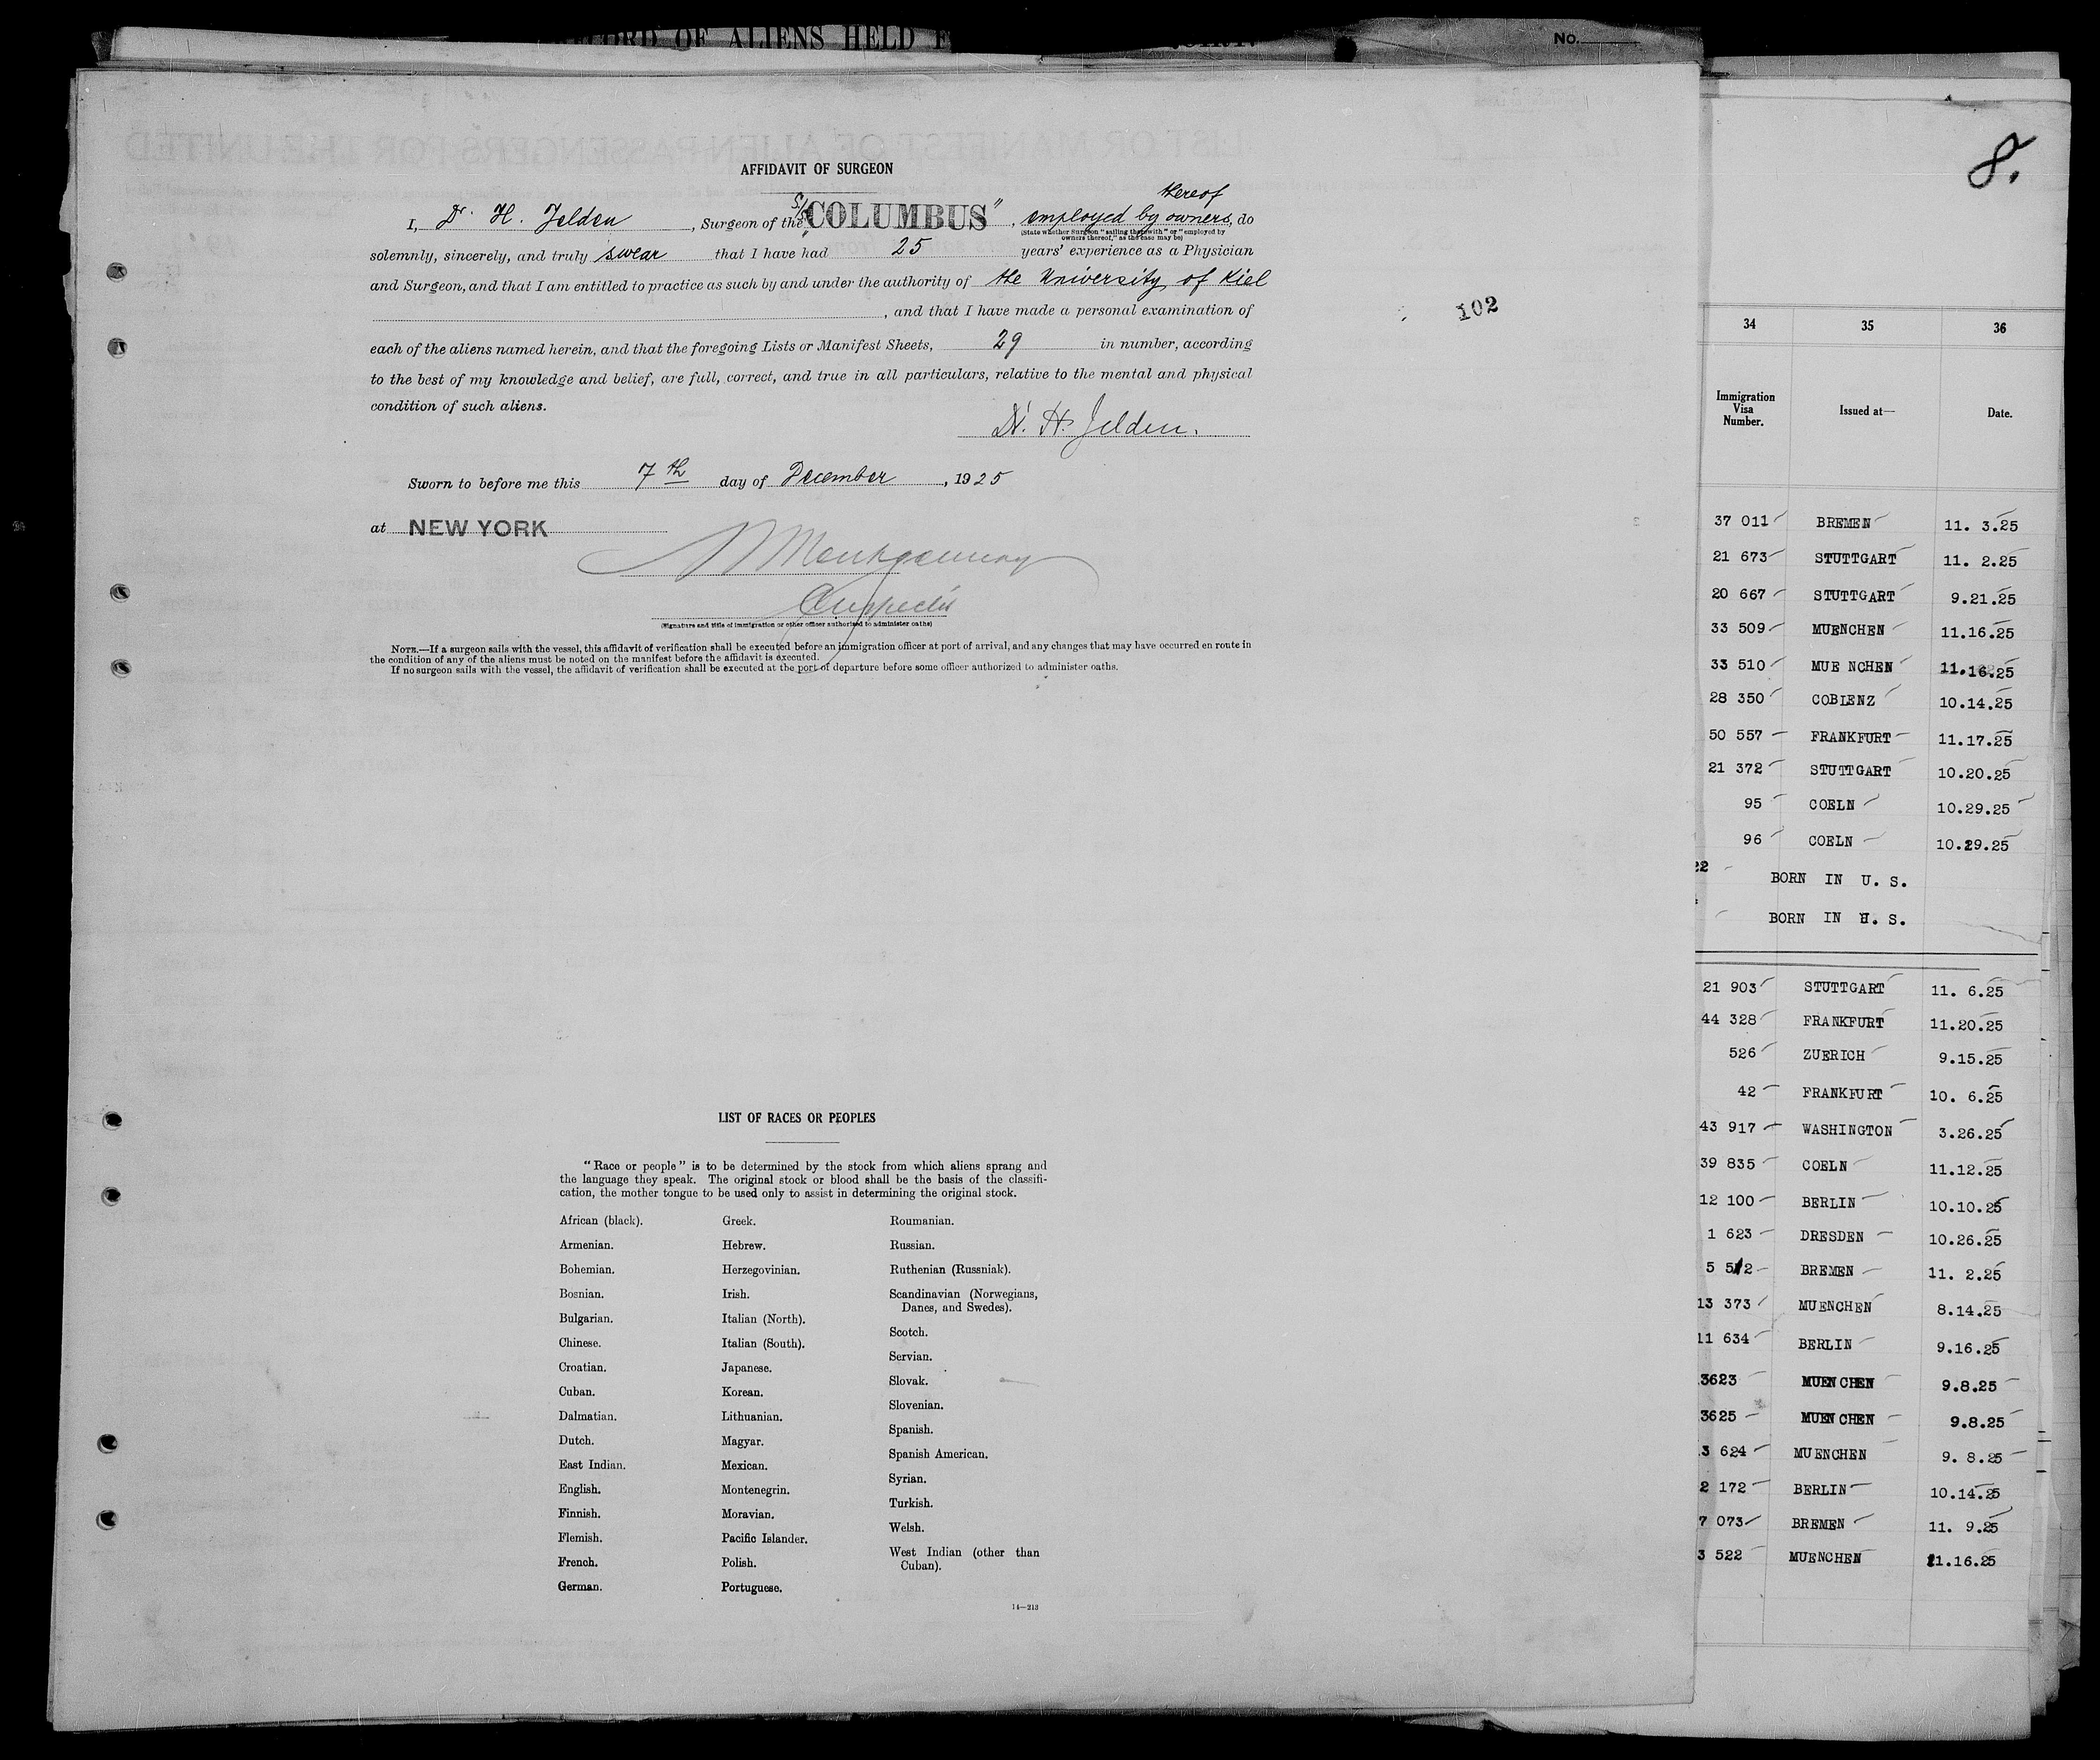 RECORD OF ALIENS HELD F
No.
8.
AFFIDAVIT OF SURGEON
I, Dr. H. Jelden, Surgeon of the S/S "COLUMBUS", employed by owners thereof, do
(State whether Surgeon "sailing therewith" or "employed by
owners thereof," as the case may be)
solemnly, sincerely, and truly swear that I have had 25 years' experience as a Physician
and Surgeon, and that I am entitled to practice as such by and under the authority of the University of Kiel
, and that I have made a personal examination of
each of the aliens named herein, and that the foregoing Lists or Manifest Sheets, 29 in number, according
to the best of my knowledge and belief, are full, correct, and true in all particulars, relative to the mental and physical
condition of such aliens.
Dr. H. Jelden.
Sworn to before me this 7th day of December, 1925
at NEW YORK
Montgomery
Inspector
(Signature and title of immigration or other officer authorized to administer oaths)
NOTE.—If a surgeon sails with the vessel, this affidavit of verification shall be executed before an immigration officer at port of arrival, and any changes that may have occurred en route in
the condition of any of the aliens must be noted on the manifest before the affidavit is executed.
If no surgeon sails with the vessel, the affidavit of verification shall be executed at the port of departure before some officer authorized to administer oaths.
102
LIST OF RACES OR PEOPLES
"Race or people" is to be determined by the stock from which aliens sprang and
the language they speak. The original stock or blood shall be the basis of the classifi-
cation, the mother tongue to be used only to assist in determining the original stock.
African (black).
Armenian.
Bohemian.
Bosnian.
Bulgarian.
Chinese.
Croatian.
Cuban.
Dalmatian.
Dutch.
East Indian.
English.
Finnish.
Flemish.
French.
German.
Greek.
Hebrew.
Herzegovinian.
Irish.
Italian (North).
Italian (South).
Japanese.
Korean.
Lithuanian.
Magyar.
Mexican.
Montenegrin.
Moravian.
Pacific Islander.
Polish.
Portuguese.
Roumanian.
Russian.
Ruthenian (Russniak).
Scandinavian (Norwegians,
Danes, and Swedes).
Scotch.
Servian.
Slovak.
Slovenian.
Spanish.
Spanish American.
Syrian.
Turkish.
Welsh.
West Indian (other than
Cuban).
14—213
34 35 36
Immigration
Visa
Number.
Issued at—
Date.
37 011 BREMEN 11. 3.25
21 673 STUTTGART 11. 2.25
20 667 STUTTGART 9.21.25
33 509 MUENCHEN 11.16.25
33 510 MUE NCHEN 11.16.25
28 350 COBLENZ 10.14.25
50 557 FRANKFURT 11.17.25
21 372 STUTTGART 10.20.25
95 COELN 10.29.25
96 COELN 10.29.25
22 BORN IN U. S.
BORN IN U. S.
21 903 STUTTGART 11. 6.25
44 328 FRANKFURT 11.20.25
526 ZUERICH 9.15.25
42 FRANKFURT 10. 6.25
43 917 WASHINGTON 3.26.25
39 835 COELN 11.12.25
12 100 BERLIN 10.10.25
1 623 DRESDEN 10.26.25
5 512 BREMEN 11. 2.25
13 373 MUENCHEN 8.14.25
11 634 BERLIN 9.16.25
3623 MUENCHEN 9.8.25
3625 MUENCHEN 9.8.25
3 624 MUENCHEN 9. 8.25
2 172 BERLIN 10.14.25
7 073 BREMEN 11. 9.25
3 522 MUENCHEN 11.16.25